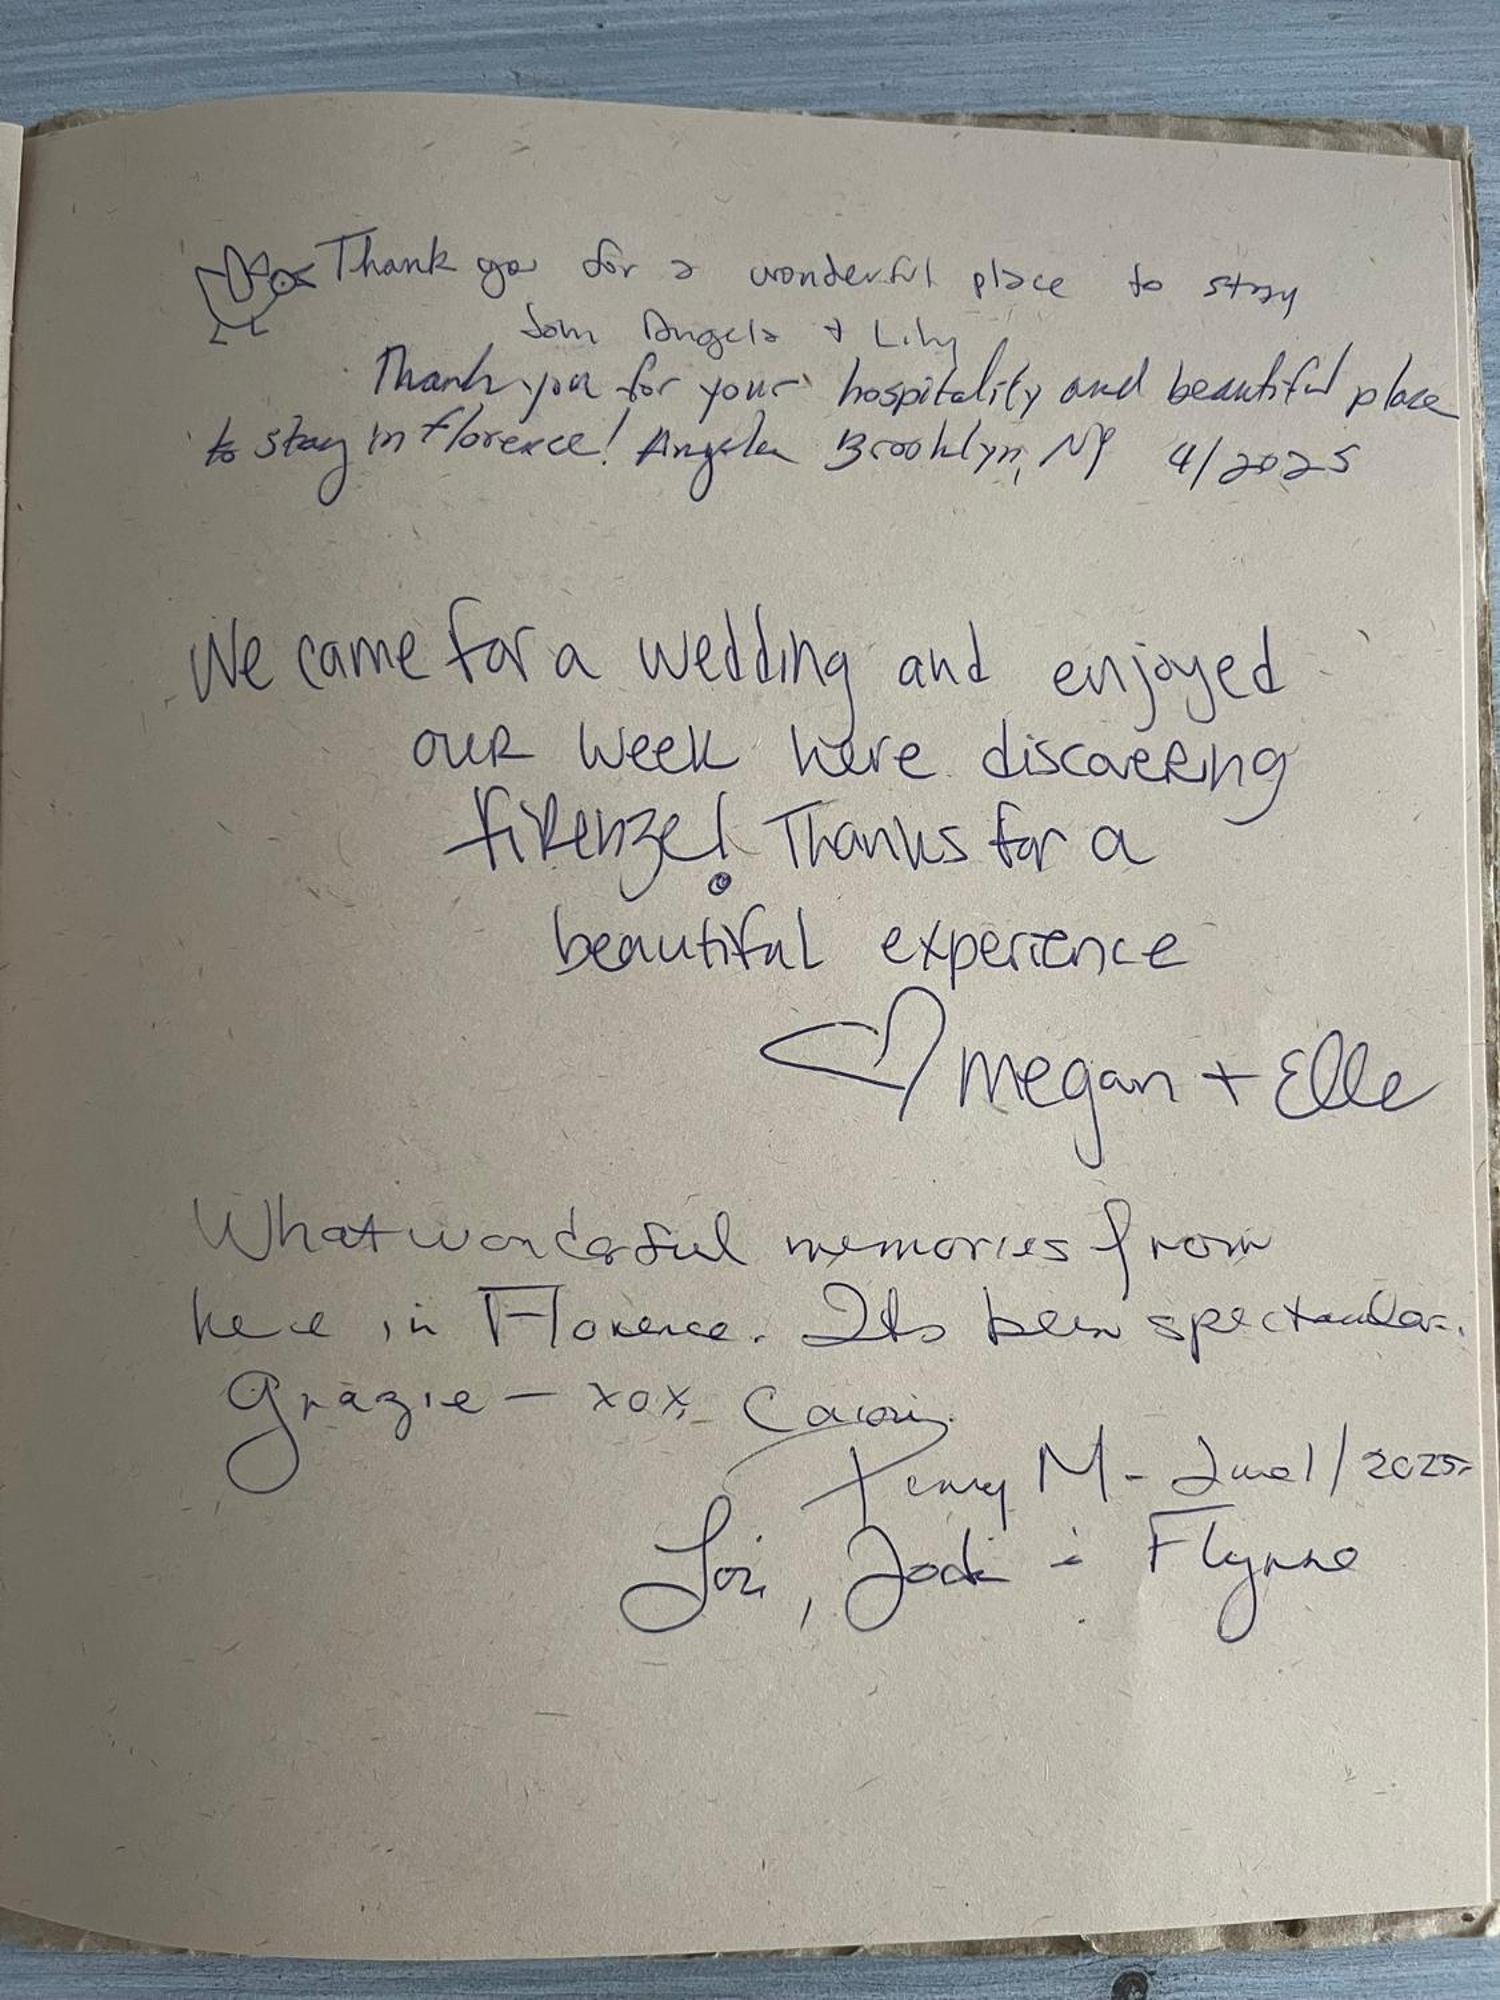 Thank you for a wonderful place to stay
Angela + Lily
Thank you for your hospitality and beautiful place
to stay in Florence! Angela Brooklyn, NY 4/2025
We came for a wedding and enjoyed
our week here discovering
firenze! Thanks for a
beautiful experience
Megan + Elle
What wonderful memories from
here in Florence. Its been spectacular.
Grazie - xox
M - June 1/2025
Lori, Jodi & Flynne